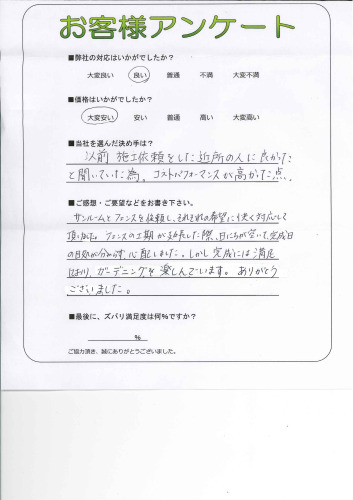 お客様アンケート
■弊社の対応はいかがでしたか？
大変良い 良い 普通 不満 大変不満
■価格はいかがでしたか？
大変安い 安い 普通 高い 大変高い
■当社を選んだ決め手は？
以前 施工依頼をした近所の人に良かった
と聞いていた為。コストパフォーマンスが高かった点
■ご感想・ご要望などをお書き下さい。
サンルームとフェンスを依頼し、それぞれの希望に快く対応して
頂いた。フェンスの工期が延長した際、日にちが空いて、完成日
の目処が分からず心配しました。しかし完成には満足
しており、ガーデニングを楽しんでいます。ありがとう
ございました。
■最後に、ズバリ満足度は何％ですか？
％
ご協力頂き、誠にありがとうございました。